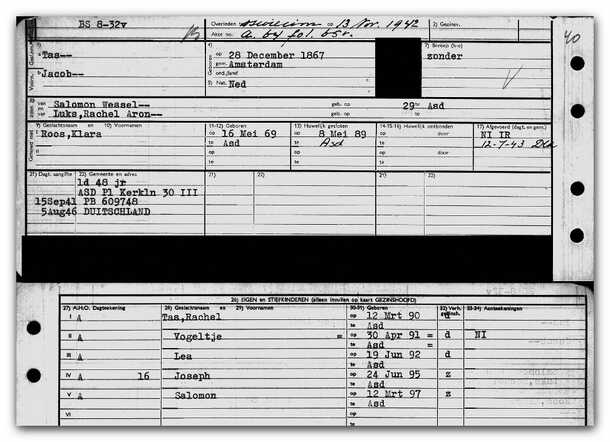 BS 8-32v Overleden op 13 Nov. 1942 2) Gezinsv.
Akte no.
40
3) 4) 7) Beroep (b-o)
Tas-- op 28 December 1867 zonder
gem. Amsterdam
Jacob-- ond./land
5) Nat. Ned
van Salomon Wessel-- geb. op 29 te Asd
en Luks, Rachel Aron-- geb. op te
9) Geslachtsnaam en 10) Voornamen 11-12) Geboren 13) Huwelijk gesloten 14-15-16) Huwelijk ontbonden 17) Afgevoerd (dagt. en gem.)
Roos, Klara op 16 Mei 69 op 8 Mei 89 op door NI IR
te Asd te Asd te 12-7-43
op op op door
te te te
21) Dagt. aangifte 22) Gemeente en adres 21) 22) 21) 22)
ld 48 jr
ASD Pl Kerkln 30 III
15Sep41 PB 609748
5Aug46 DUITSCHLAND
26) EIGEN en STIEFKINDEREN (alleen invullen op kaart GEZINSHOOFD)
27) A.H.O. Dagteekening 28) Geslachtsnaam en 29) Voornamen 30-31) Geboren 32) Verh. 33-34) Aanteekeningen
I A Tas, Rachel op 12 Mrt 90 d
te Asd
II A Vogeltje = op 30 Apr 91 = d NI
te Asd =
III A Lea op 19 Jun 92 d
te Asd
IV A 16 Joseph op 24 Jun 95 z
te Asd
V A Salomon op 12 Mrt 97 z
te Asd
VI op